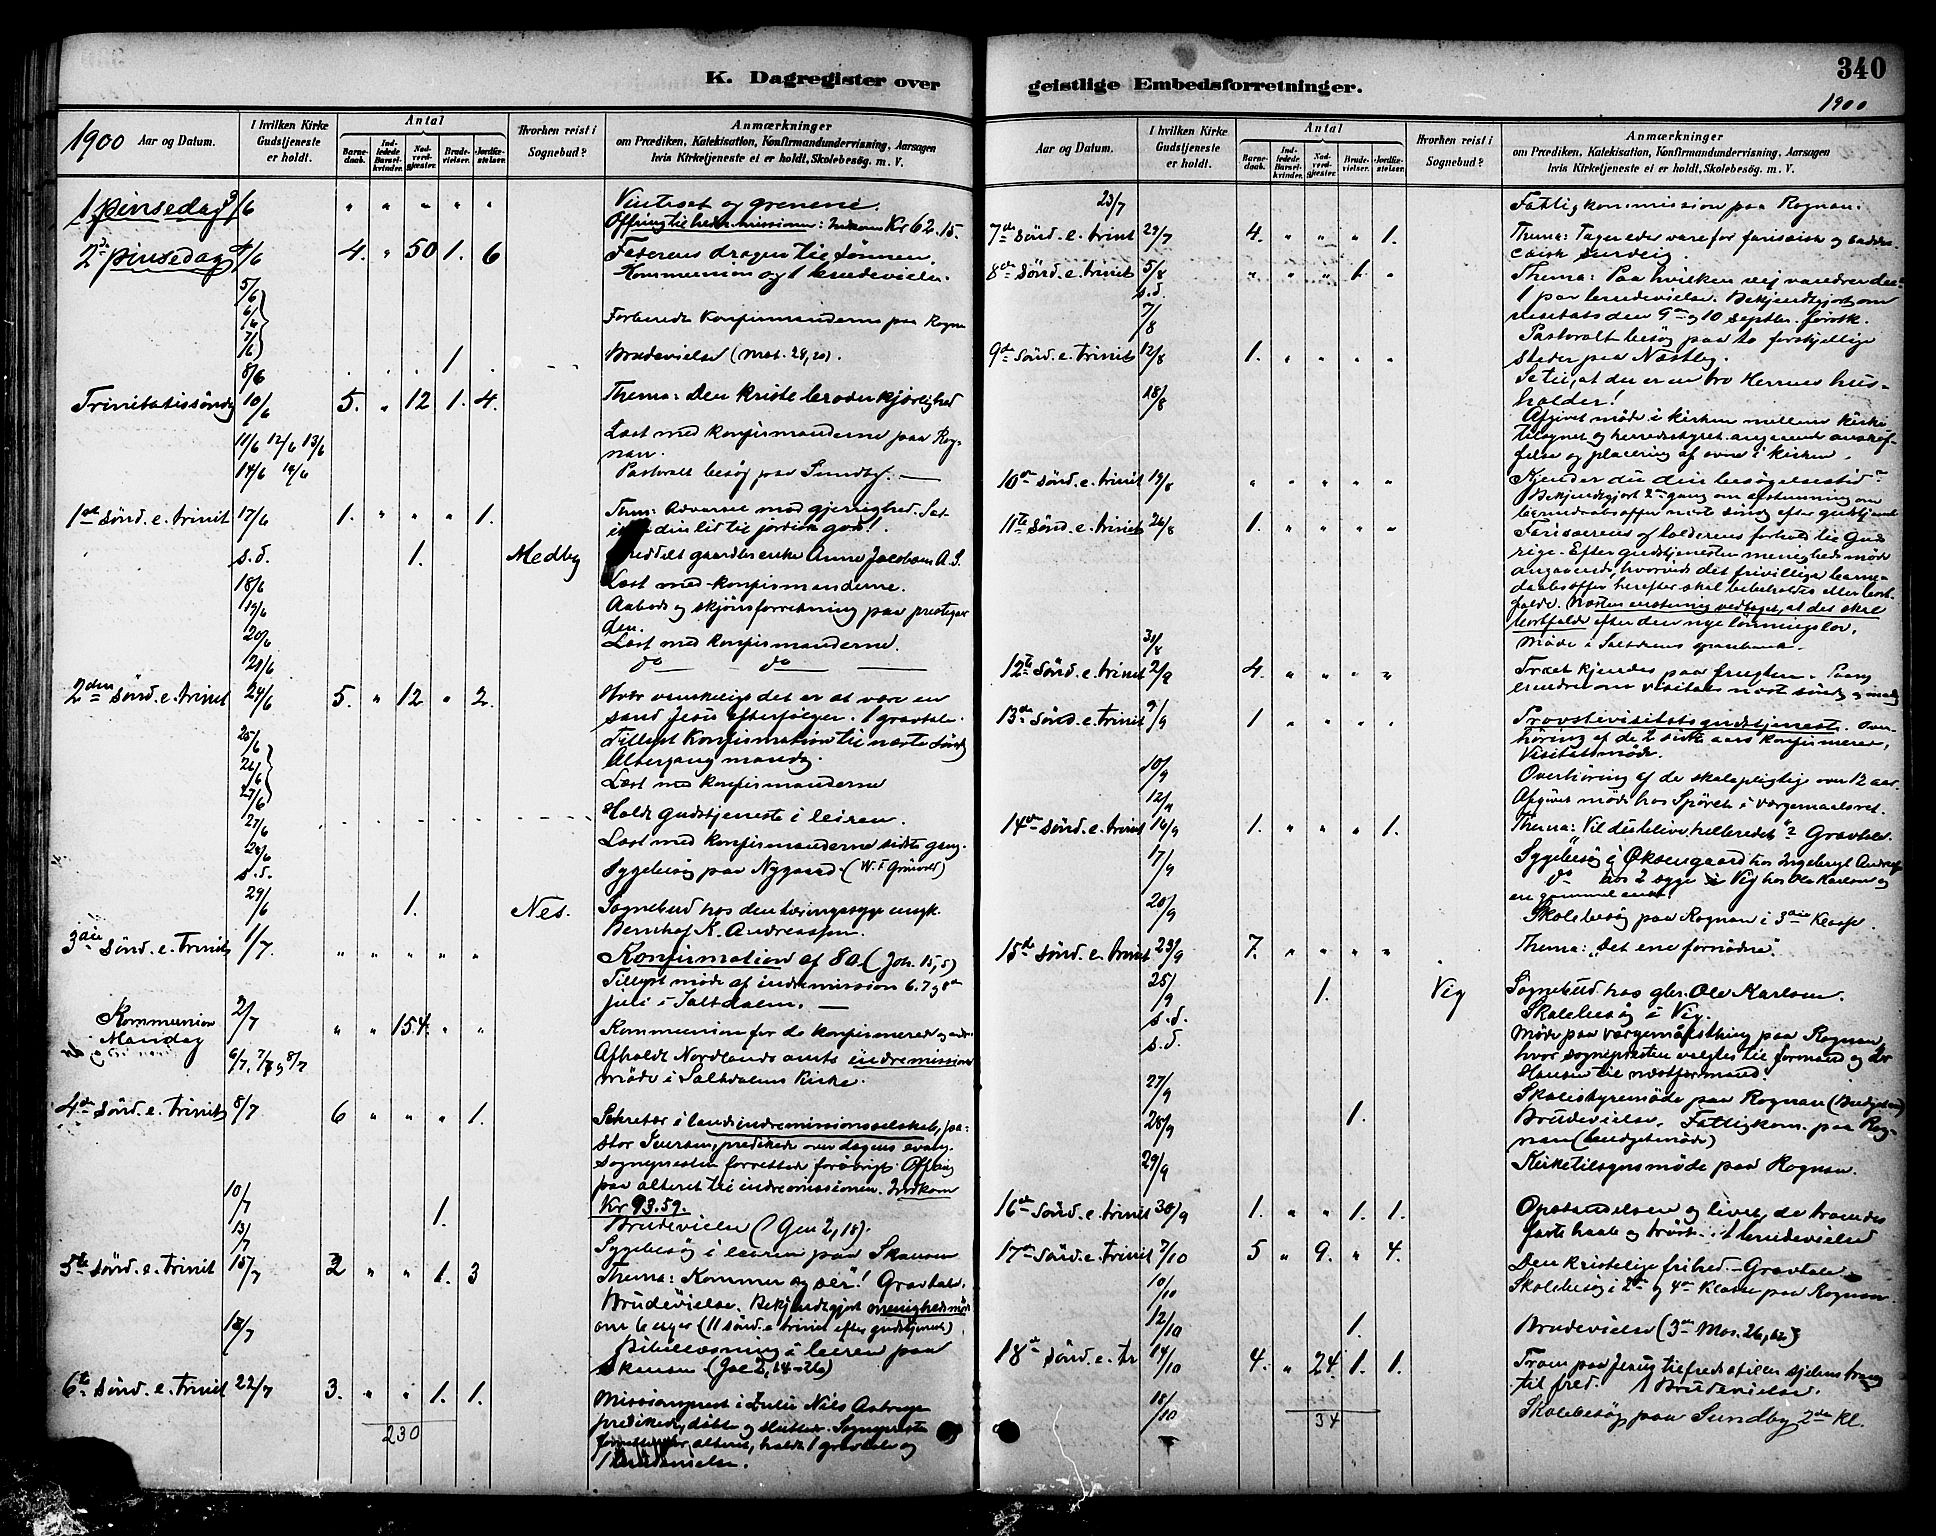 K. Dagregister over
geistlige Embedsforretninger.
340
1900
1900 Aar og Datum.
I hvilken Kirke Gudstjeneste er holdt.
Antal
Barnedaab.
Indledede Barselkvinder.
Nadverdgjester.
Brudevielser.
Jordfæstelser.
Hvorhen reist i Sognebud?
Anmærkninger
om Prædiken, Katekisation, Konfirmandundervisning, Aarsagen
hvis Kirketjeneste ei er holdt, Skolebesøg. m. V.
1 pinsedag 3/6 " " " " " Vintræet og grenene.
Offring til indremissionen: Indkom Kr 62.15.
2den pinsedag 4/6 4. " 50 1. 6 Faderens dragen til Sønnen.
Kommunion og 1 brudevielse.
5/6
6/6
7/6
Forberedte Konfirmanderne paa Rognan
8/6 1. Brudevielse (Mat. 28, 20).
Trinitatissøndag 10/6 5. " 12 1. 4. Thema: Den kriste broderkjærlighed
11/6 12/6 13/6 Læst med konfirmanderne paa Rog-
nan.
14/6 14/6 Pastoralt besøg paa Sundby. —
1ste Sønd. e. trinit 17/6 1. " " " 1. Them: Advarsel mod gjerrighed. Sæt
din lid til jordisk gods!
s.d. 1. Medby gaardbr. enke Anne Jacobsen A. S.
18/6 Læst med konfirmanderne.
19/6 Aabods og skjønsforretning paa prestegaar
den.
20/6 Læst med konfirmanderne.
21/6 do — do —
2den Sønd. e. trinit 24/6 5. " 12 " 2. Hvor vanskelig det er at være en
sand Jesu efterfølger. 1 gravtale.
Tillyst Konfirmation til næste Søndg
Altergang mandg.
25/6
26/6
27/6
Læst med konfirmanderne
27/6 Holdt gudstjeneste i leiren.
28/6 Læst med konfirmanderne sidste gang.
s.d. Sygebesøg paa Nygaard.
29/6 1. Nes. Sognebud hos den tæringssyge ungk.
Bernhof K. Andreassen.
3die Sønd. e. trinit 1/7. " " " " " Konfirmation af 80 (Joh. 15, 5)
Tillyst møde af indremission 6. 7 og 8de
juli i Saltdalen. —
Kommunion
Mandag 2/7 " " 154. " " Kommunion for de konfirmerede og andre
6/7, 7/7 og 8/7 Afholdt Nordlands amts indremissions
møde i Saltdalens Kirke.
4de Sønd. e. trinit 8/7 6 " " " 1. Sekretær i landsindremissionsselskab, pa-
stor Iversen, prædikede over dagens evang.
Sognepresten forrettede forøvrigt. Ofring
paa alteret til indremissionen. Indkom
Kr 93.59.
10/7 1. Brudevielse (Gen 2, 18).
13/7 Sygebesøg i leiren paa Skansen
5te Sønd. e. trinit 15/7 2 " " 1. 3 Thema: "Kommer og ser"! Gravtale.
Brudevielse. Bekjendtgjort menighedsmøde
om 6 uger (11 sønd. e trinit efter gudstjenest)
18/7 Bibellæsning i leiren paa
Skansen (Jac 2, 14-26)
6te Sønd. e. trinit 22/7 3. " " 1. 1. Missionsprest i Zulu Nils Astrup
prædikede, døbte og sluttede. Sognepresten
alteret, holdt 1 gravtale og
1 Brudevielse.
230
Aar og Datum.
I hvilken Kirke Gudstjeneste er holdt.
Antal
Barnedaab.
Indledede Barselkvinder.
Nadverdgjester.
Brudevielser.
Jordfæstelser.
Hvorhen reist i Sognebud?
Anmærkninger
om Prædiken, Katekisation, Konfirmandundervisning, Aarsagen
hvis Kirketjeneste ei er holdt, Skolebesøg. m. V.
23/7 Fattigkommission paa Rognan.
7de Sønd. e. trinit 29/7 4. " " " 1. Thema: Tager eder vare for farisæisk og saddu-
cæisk surdeig.
8de Sønd. e. trinit 5/8 " " " 1. " Thema: Paa hvilken vej vandrer du?
s.d. 1 par brudevielse. Bekjendtgjort om
visitats den 9de og 10 septbr. førstk.
7/8 Pastoralt besøg paa to forskjellige
steder paa Næstby.
9de Sønd. e. trinit 12/8 1. " " " " Se til, at du er en tro Herrens hus-
holder!
18/8 Afgivet møde i kirken mellem Kirke-
tilsynet og herredsstyret angaaende anskaf-
felse og placering af ovne i kirken.
10de Sønd. e. trinit 19/8 " " " " " Kjender du din besøgelsestid?
Bekjendtgjort 2den gang om afstemning om
barnedaabsoffer næste søndg efter gudstjenst
11te Sønd. e. trinit 26/8 1. " " " " Farisæerens og tolderens forhold til Guds
rige. Efter gudstjenesten menighedsmøde
angaaende, hvorvidt det frivillige barne-
daabsoffer herefter skal beholdes eller bort-
falde. Næsten enstemmig vedtaget, at det skal
bortfalde efter den nye lønningslov.
31/8 Møde i Saltdalens sparebank.
12te Sønd. e. trinit 2/9 4. " " " " Træet kjendes paa frugten. Paa ny
erindre om visitats næst søndg og mandg
13de Sønd. e. trinit 9/9 1 " " " " Provstevisitatsgudstjeneste. Over-
høring af de 2 sidste aars konfirmerede,
Visitatsmøde.
10/9 Overhøring af de skolepligtige over 12 aar.
12/9 Afgivet møde hos Spøret i værgemaalsret.
14de Sønd. e. trinit 16/9 1. " " " 1. Thema: "Vil du blive helbredet"? Gravtale.
17/9 Sygebesøg i Øksengaard hos Ingeborg
do hos 2 syge i Vig hos Ole Karlsen og
en gammel enke.
20/9 Skolebesøg paa Rognan i 3die Klasse.
15de Sønd. e. trinit 23/9 7. " " " " Thema: "Det ene fornødne".
25/9 1. Vig Sognebud hos gbr. Ole Karlsen.
s.d. Skolebesøg i Vig.
s.d. Møde paa værgemaalsting paa Rognan,
hvor sognepresten valgtes til formand og
Hansen til næstformand.
27/9 Skolestyremøde paa Rognan (Budgetmd)
28/9 1. Brudevielse. Fattigkom. paa Rog-
nan (budgetmøde)
29/9 Kirketilsynsmøde paa Rognan.
16de Sønd. e. trinit 30/9 1. " " 1. 1. Opstandelsen og livet, de troendes
faste haab og trøst. 1 brudevielse
17de Sønd. e. trinit 7/10 5 " 9. " 4. Den kristelige frihed. — Gravtale.
10/10 Skolebesøg i 2den og 4de Klasse paa Rognan.
12/10 1. Brudevielse (3de Mos. 26,
18de Sønd. e. tr 14/10 4. " 24. 1. 1. Troen paa Jesus tilfredsstiller sjelens trang
til fred. 1 Brudevielse.
18/10 Skolebesøg paa Sundby 2den Kl.
34